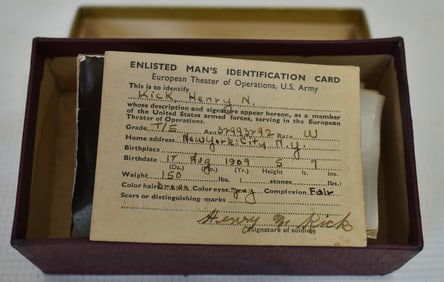 ENLISTED MAN'S IDENTIFICATION CARD
European Theater of Operations, U.S. Army
This is to identify
Kick, Henry N.
whose description and signature appear hereon, as a member
of the United States armed forces, serving in the European
Theater of Operations.
Grade T/5 Asn Race W
Home address New York City N.Y.
Birthplace
Birthdate 17 Aug 1909 Height 5 ft. 9 ins.
(Da.) (Mo.) (Yr.)
Weight 150 lbs. ( stones lbs.)
Color hair brown Color eyes gray Complexion Fair
Scars or distinguishing marks
Henry N Kick
(signature of soldier)